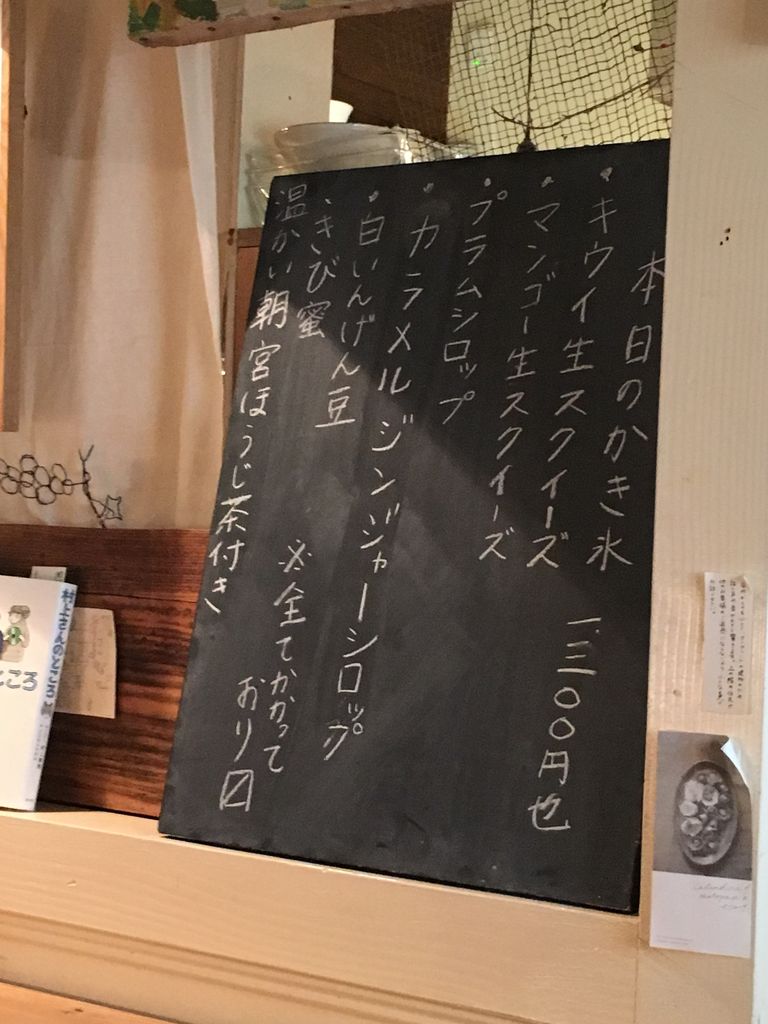 本日のかき氷
・キウイ生スクイーズ 一.三〇〇円也
・マンゴー生スクイーズ
・プラムシロップ
・カラメルジンジャーシロップ
・白いんげん豆
・きび蜜
※全てかかって
おり〼
温かい朝宮ほうじ茶付き
村上さんのところ
ところ